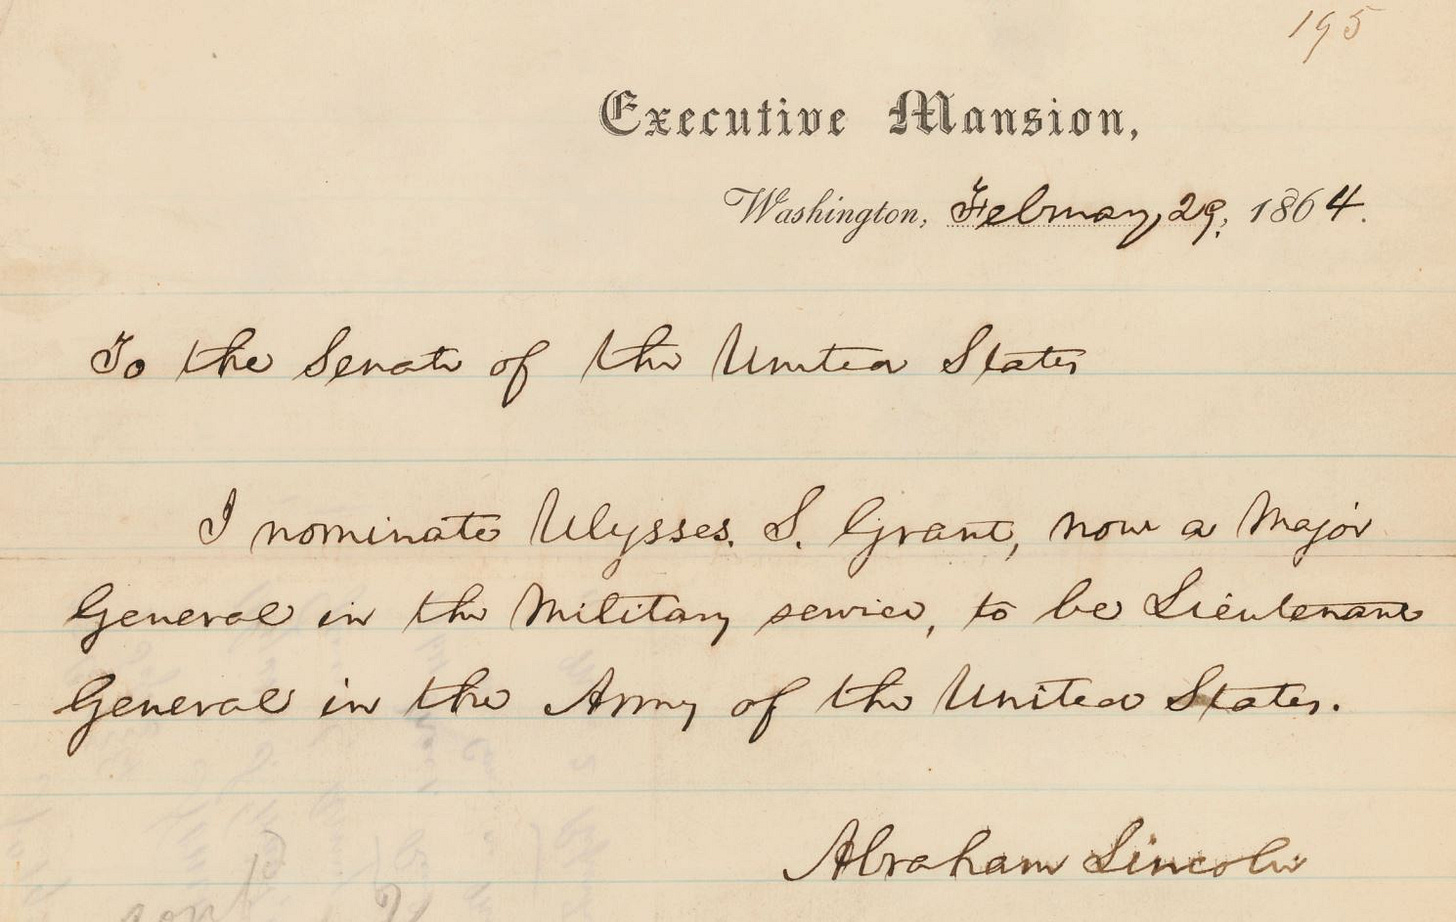 195
Executive Mansion,
Washington, February, 29, 1864.
To the Senate of the United States
I nominate Ulysses. S. Grant, now a Major
General in the Military service, to be Lieutenant
General in the Army of the United States.
Abraham Lincoln